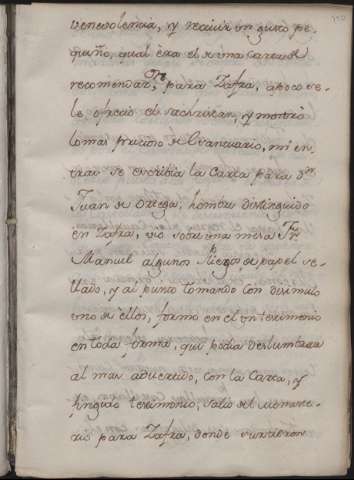 venevolencia, y recivir un gusto pe-
queño, qual èra el de una Carta de
recomendaz.on para Zafra, apoco se
le ofreciò el sachristan, y mostrò
lo mas precioso del Santuario, mien-
tras se escribia la Carta para Dn
Juan de Ortega, hombre distinguido
en Zafra, viò sobre una mesa Fr.
Manuel algunos Pliegos de papel se-
llado, y al punto tomando con disimulo
uno de ellos, formò en el un testimonio
en toda forma, que podia deslumbrar
al mas advertido, con la Carta, y
fingido testimonio, saliò del Monaste-
rio para Zafra, donde surtieron